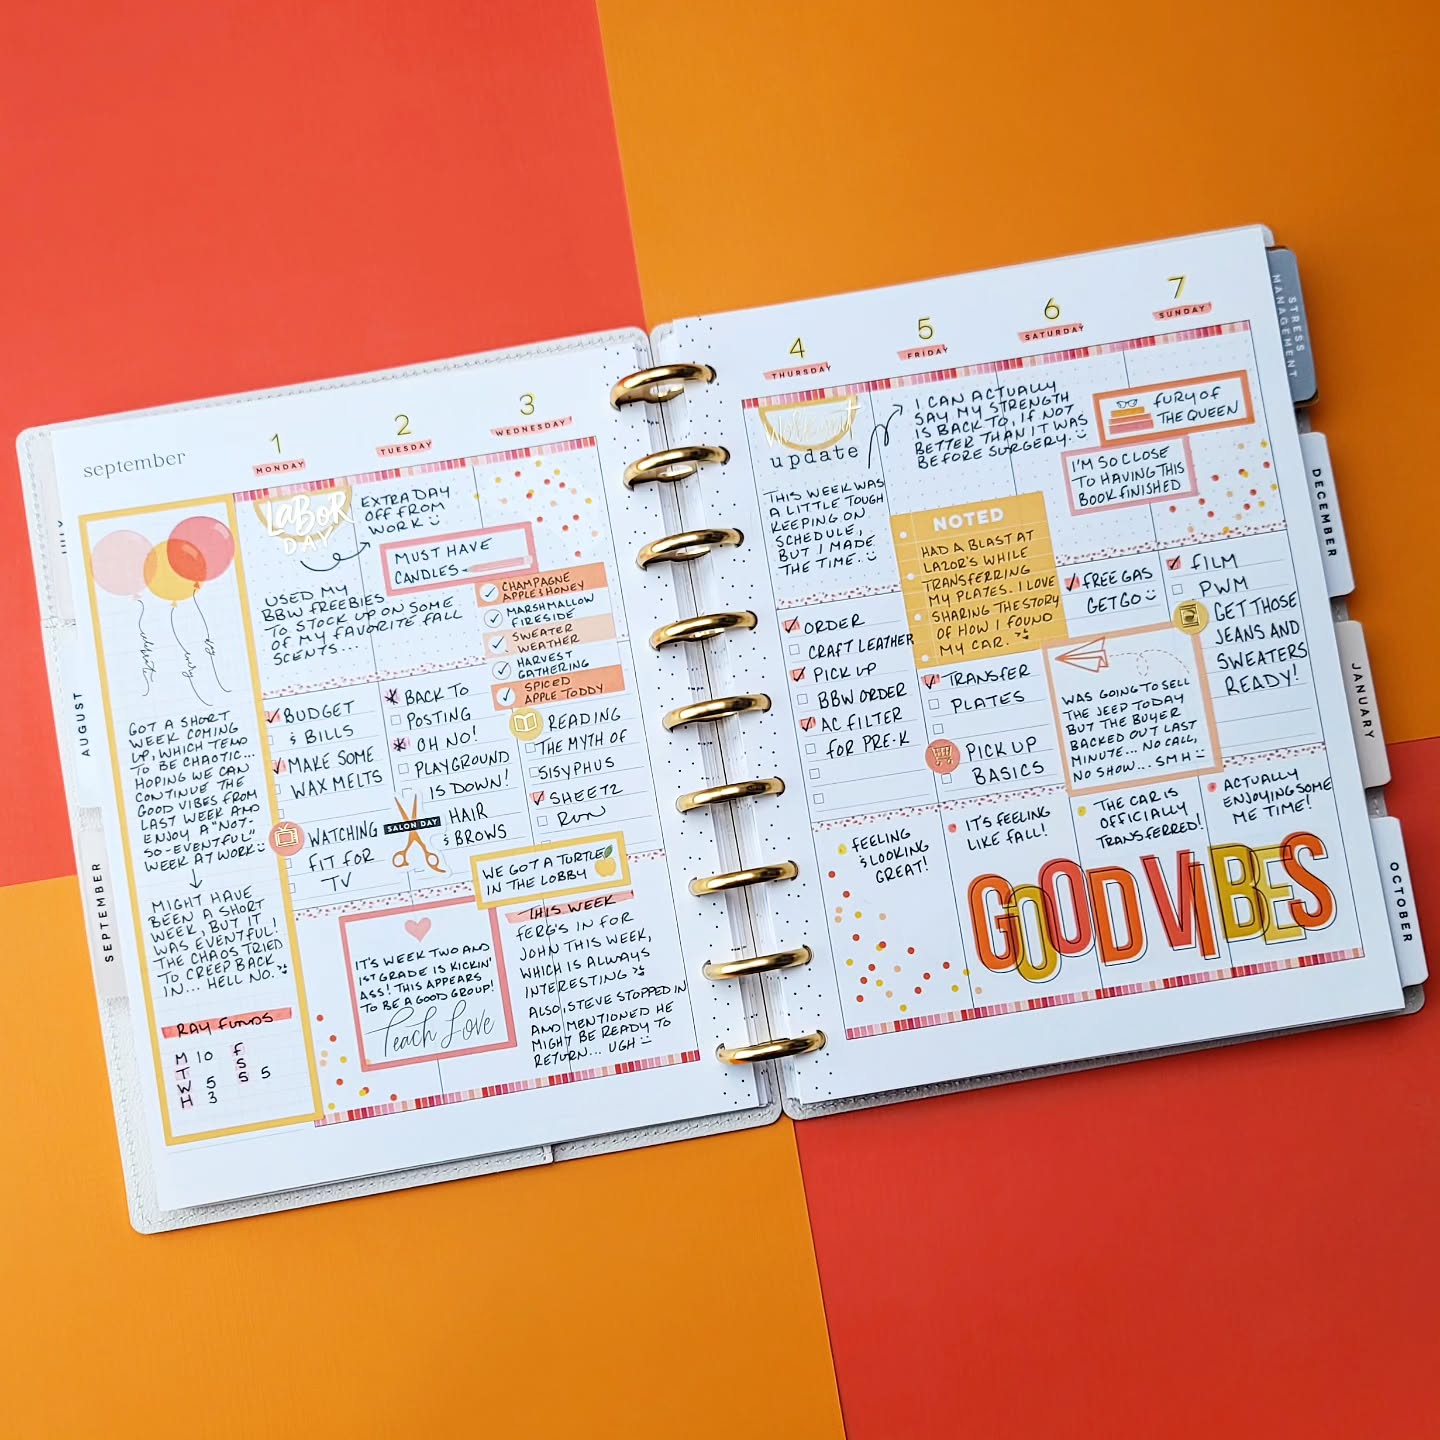 september
1
MONDAY
2
TUESDAY
3
WEDNESDAY
celebrate
every
day
GOT A SHORT
WEEK COMING
UP, WHICH TEND
TO BE CHAOTIC...
HOPING WE CAN
CONTINUE THE
GOOD VIBES FROM
LAST WEEK AND
ENJOY A "NOT-
SO-EVENTFUL"
WEEK AT WORK
MIGHT HAVE
BEEN A SHORT
WEEK, BUT IT
WAS EVENTFUL!
THE CHAOS TRIED
TO CREEP BACK
IN... HELL NO.
RAY FUNDS
M 10 F
T S
W 5 S 5
H 3
LABOR
DAY
EXTRA DAY
OFF FROM
WORK
USED MY
BBW FREEBIES
TO STOCK UP ON SOME
OF MY FAVORITE FALL
SCENTS...
MUST HAVE
CANDLES
CHAMPAGNE
APPLE & HONEY
MARSHMALLOW
FIRESIDE
SWEATER
WEATHER
HARVEST
GATHERING
SPICED
APPLE TODDY
BUDGET
& BILLS
MAKE SOME
WAX MELTS
WATCHING
FIT FOR
TV
BACK TO
POSTING
OH NO!
PLAYGROUND
IS DOWN!
SALON DAY
HAIR
& BROWS
READING
THE MYTH OF
SISYPHUS
SHEETZ
RUN
WE GOT A TURTLE
IN THE LOBBY
IT'S WEEK TWO AND
1ST GRADE IS KICKIN'
ASS! THIS APPEARS
TO BE A GOOD GROUP!
Teach Love
THIS WEEK
FERG'S IN FOR
JOHN THIS WEEK,
WHICH IS ALWAYS
INTERESTING
ALSO, STEVE STOPPED IN
AND MENTIONED HE
MIGHT BE READY TO
RETURN... UGH
4
THURSDAY
5
FRIDAY
6
SATURDAY
7
SUNDAY
Workout
update
I CAN ACTUALLY
SAY MY STRENGTH
IS BACK TO, IF NOT
BETTER THAN IT WAS
BEFORE SURGERY.
THIS WEEK WAS
A LITTLE TOUGH
KEEPING ON
SCHEDULE,
BUT I MADE
THE TIME.
NOTED
HAD A BLAST AT
LAZOR'S WHILE
TRANSFERRING
MY PLATES. I LOVE
SHARING THE STORY
OF HOW I FOUND
MY CAR.
FURY OF
THE QUEEN
I'M SO CLOSE
TO HAVING THIS
BOOK FINISHED
ORDER
CRAFT LEATHER
PICK UP
BBW ORDER
AC FILTER
FOR PRE-K
TRANSFER
PLATES
PICK UP
BASICS
FREE GAS
GETGO
WAS GOING TO SELL
THE JEEP TODAY
BUT THE BUYER
BACKED OUT LAST
MINUTE... NO CALL,
NO SHOW... SMH
FILM
PWM
GET THOSE
JEANS AND
SWEATERS
READY!
FEELING
& LOOKING
GREAT!
IT'S FEELING
LIKE FALL!
THE CAR IS
OFFICIALLY
TRANSFERRED!
ACTUALLY
ENJOYING SOME
ME TIME!
GOOD VIBES
AUGUST
SEPTEMBER
STRESS
MANAGEMENT
DECEMBER
JANUARY
OCTOBER